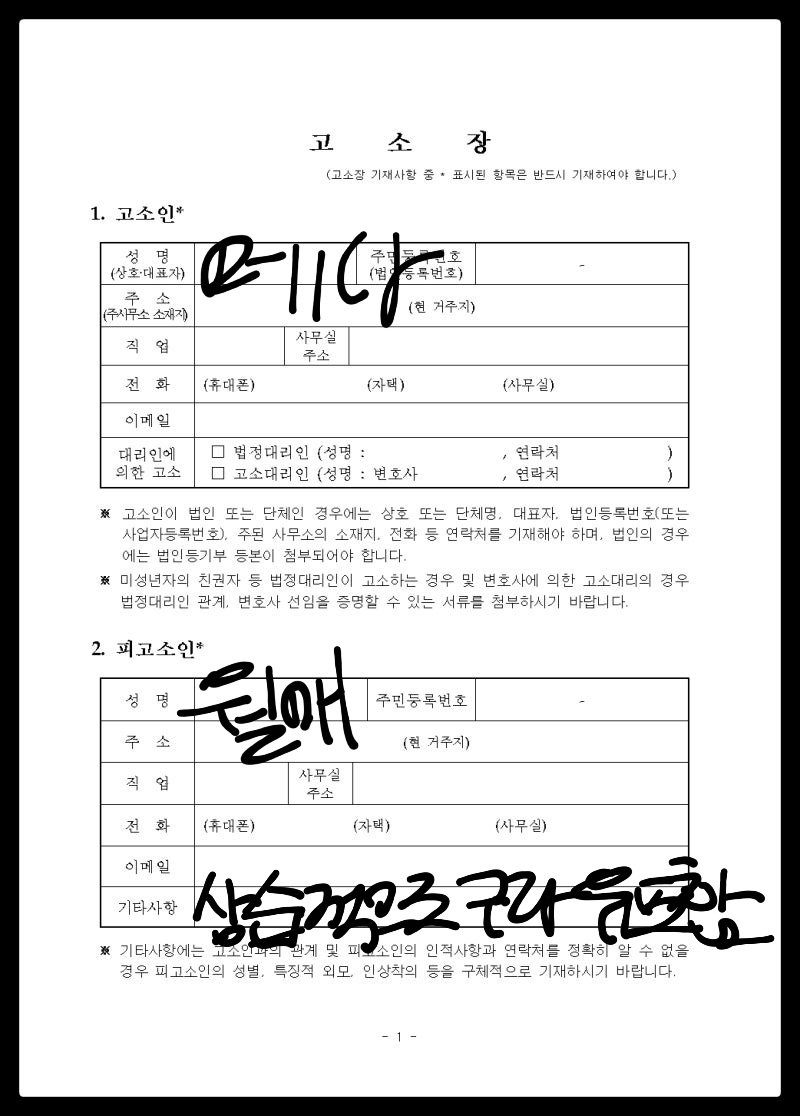 고 소 장
(고소장 기재사항 중 * 표시된 항목은 반드시 기재하여야 합니다.)
1. 고소인*
성 명
(상호·대표자)
주민등록번호
(법인등록번호)
-
주 소
(주사무소 소재지)
(현 거주지)
직 업
사무실
주소
전 화 (휴대폰) (자택) (사무실)
이메일
대리인에
의한 고소
□ 법정대리인 (성명 : , 연락처 )
□ 고소대리인 (성명 : 변호사 , 연락처 )
※ 고소인이 법인 또는 단체인 경우에는 상호 또는 단체명, 대표자, 법인등록번호(또는
사업자등록번호), 주된 사무소의 소재지, 전화 등 연락처를 기재해야 하며, 법인의 경우
에는 법인등기부 등본이 첨부되어야 합니다.
※ 미성년자의 친권자 등 법정대리인이 고소하는 경우 및 변호사에 의한 고소대리의 경우
법정대리인 관계, 변호사 선임을 증명할 수 있는 서류를 첨부하시기 바랍니다.
2. 피고소인*
성 명 월매 주민등록번호 -
주 소 (현 거주지)
직 업
사무실
주소
전 화 (휴대폰) (자택) (사무실)
이메일
기타사항 상습적으로 구라 유포함
※ 기타사항에는 고소인과의 관계 및 피고소인의 인적사항과 연락처를 정확히 알 수 없을
경우 피고소인의 성별, 특징적 외모, 인상착의 등을 구체적으로 기재하시기 바랍니다.
- 1 -